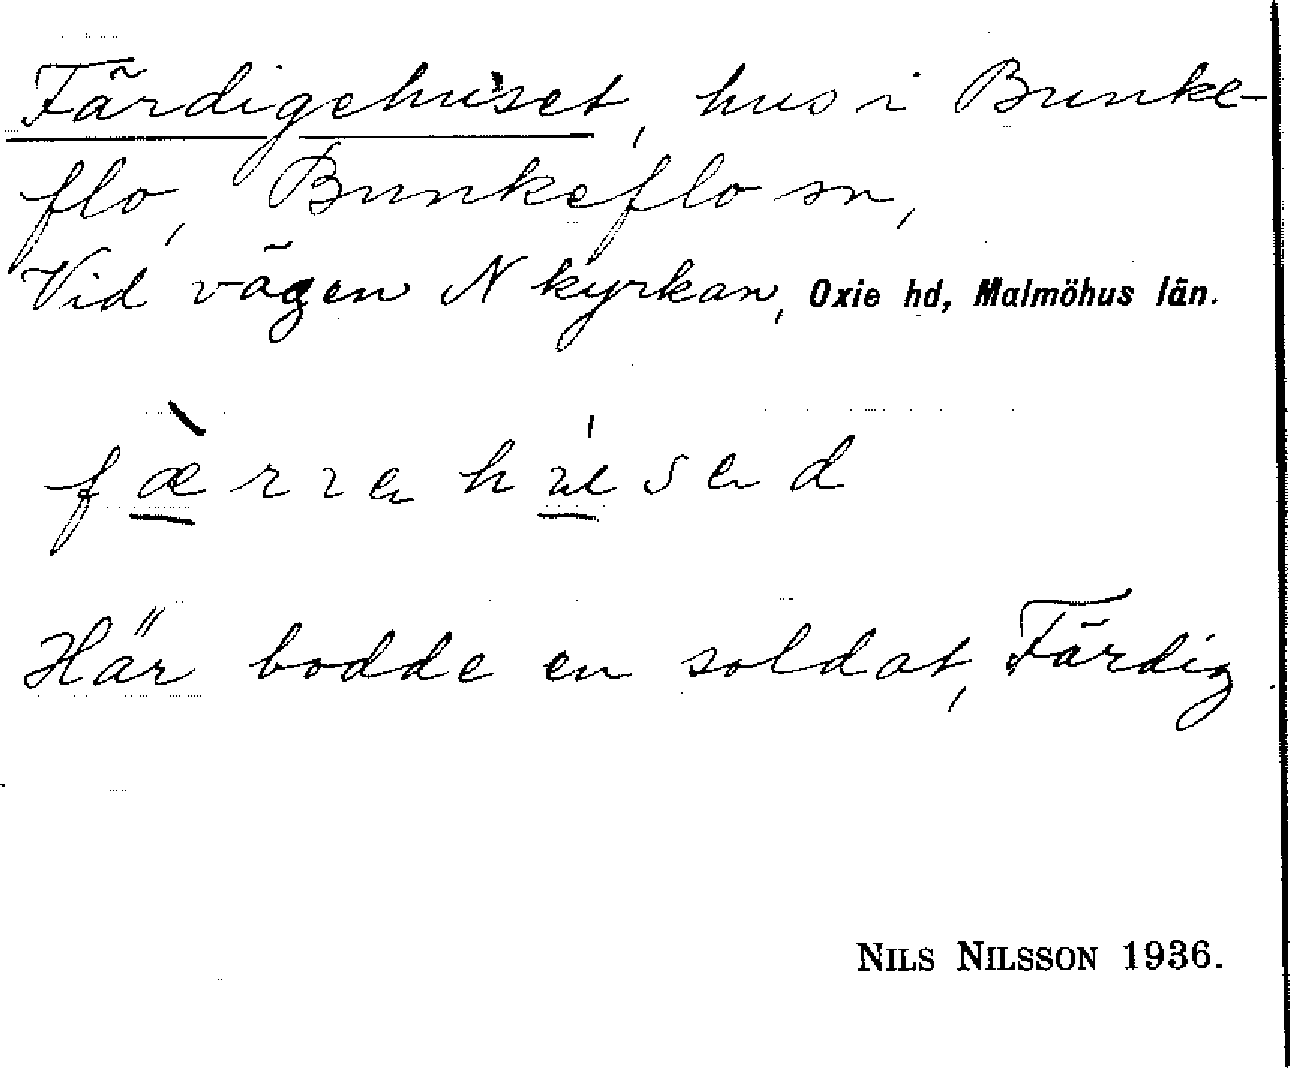 Färdigehuset, hus i Bunke-
flo, Bunkeflo sn,
Vid vägen N kyrkan, Oxie hd, Malmöhus län.
Här bodde en soldat, Färdig.
NILS NILSSON 1936.